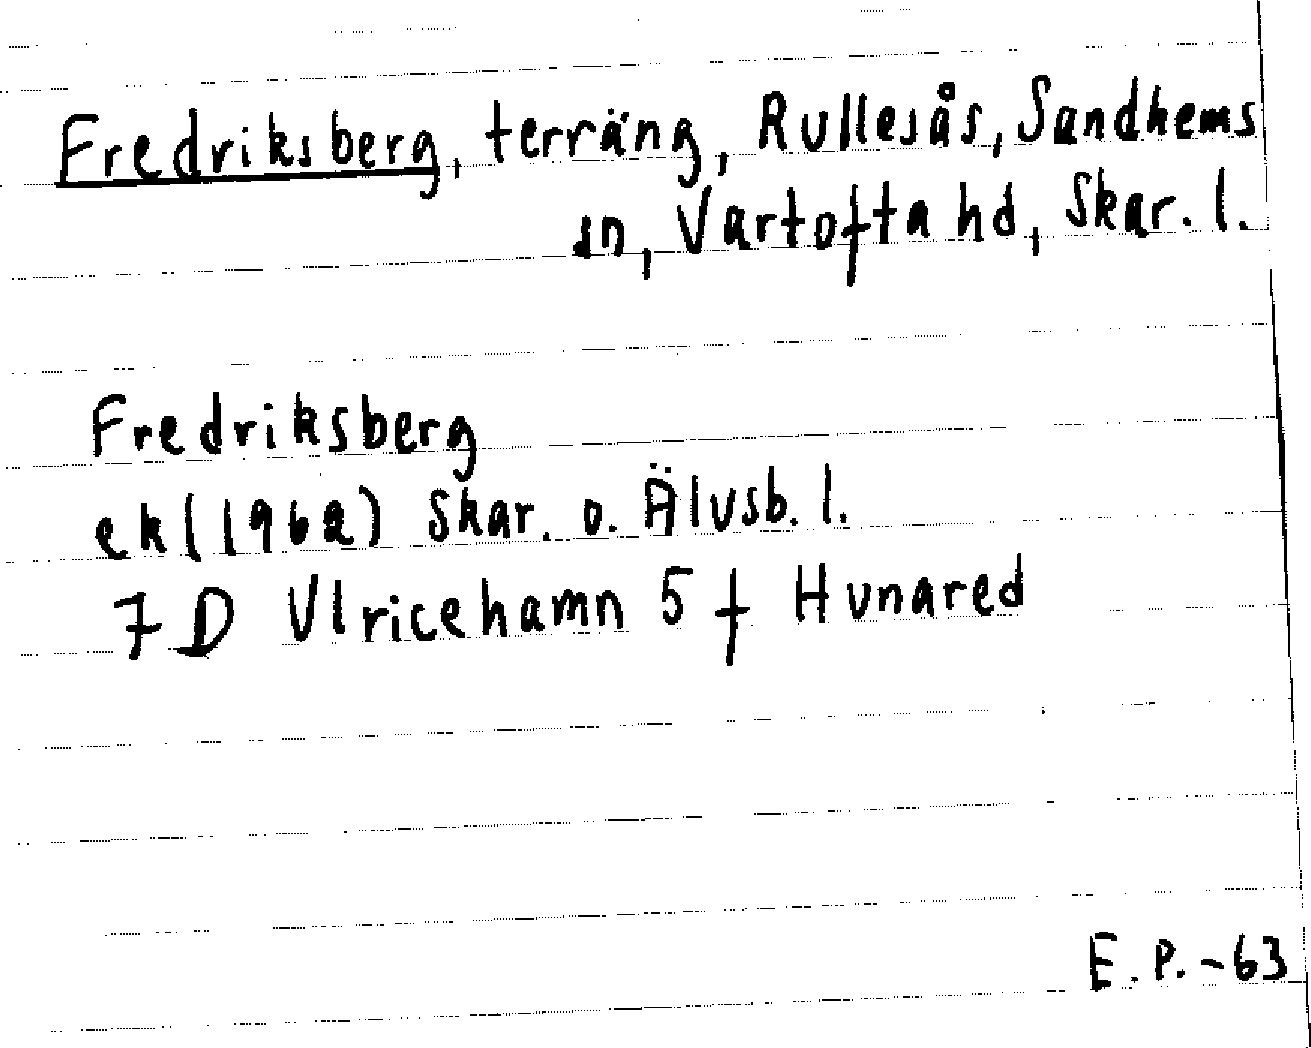 Fredriksberg, terräng, Rullesås, Sandhems
sn, Vartofta hd, Skar. l.
Fredriksberg
ek (1962) Skar. o. Älvsb. l.
7 D Ulricehamn 5 f Hunared
E. P. -63